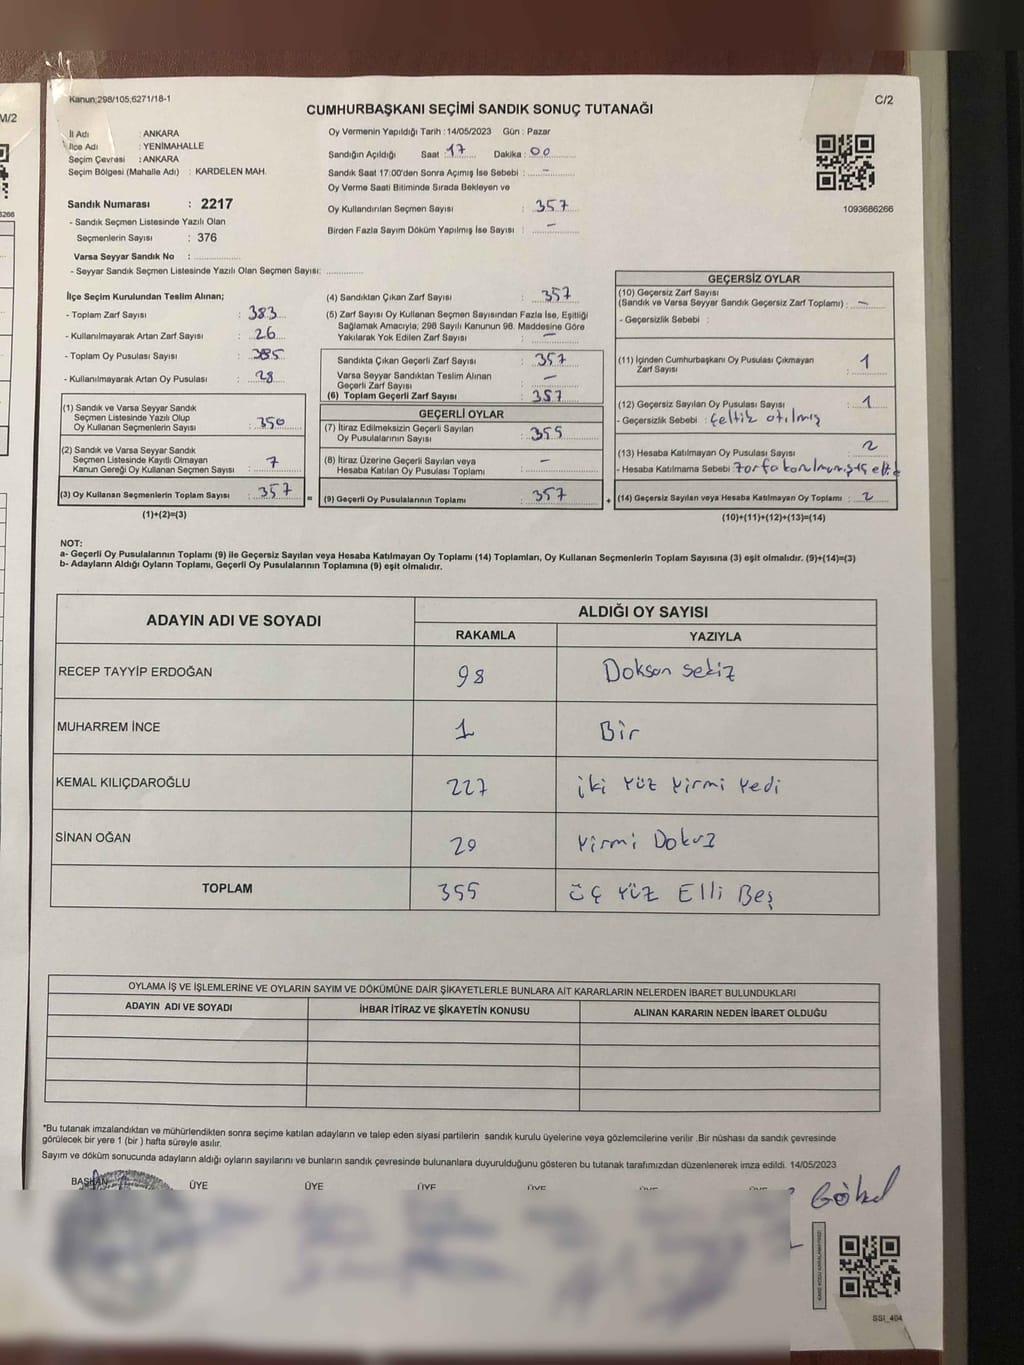 M/2
Kanun;298/105;6271/18-1
C/2
CUMHURBAŞKANI SEÇİMİ SANDIK SONUÇ TUTANAĞI
İl Adı : ANKARA
İlçe Adı : YENİMAHALLE
Seçim Çevresi : ANKARA
Seçim Bölgesi (Mahalle Adı) : KARDELEN MAH.
Sandık Numarası : 2217
- Sandık Seçmen Listesinde Yazılı Olan
Seçmenlerin Sayısı : 376
Varsa Seyyar Sandık No :
- Seyyar Sandık Seçmen Listesinde Yazılı Olan Seçmen Sayısı:
Oy Vermenin Yapıldığı Tarih : 14/05/2023 Gün : Pazar
Sandığın Açıldığı Saat : 17 Dakika : 00
Sandık Saat 17:00'den Sonra Açımış İse Sebebi : -
Oy Verme Saati Bitiminde Sırada Bekleyen ve
Oy Kullandırılan Seçmen Sayısı : 357
Birden Fazla Sayım Döküm Yapılmış İse Sayısı : -
1093686266
İlçe Seçim Kurulundan Teslim Alınan;
- Toplam Zarf Sayısı : 383
- Kullanılmayarak Artan Zarf Sayısı : 26
- Toplam Oy Pusulası Sayısı : 385
- Kullanılmayarak Artan Oy Pusulası : 28
(1) Sandık ve Varsa Seyyar Sandık
Seçmen Listesinde Yazılı Olup
Oy Kullanan Seçmenlerin Sayısı : 350
(2) Sandık ve Varsa Seyyar Sandık
Seçmen Listesinde Kayıtlı Olmayan
Kanun Gereği Oy Kullanan Seçmen Sayısı : 7
(3) Oy Kullanan Seçmenlerin Toplam Sayısı : 357
(1)+(2)=(3)
(4) Sandıktan Çıkan Zarf Sayısı : 357
(5) Zarf Sayısı Oy Kullanan Seçmen Sayısından Fazla İse, Eşitliği
Sağlamak Amacıyla; 298 Sayılı Kanunun 98. Maddesine Göre
Yakılarak Yok Edilen Zarf Sayısı : -
Sandıkta Çıkan Geçerli Zarf Sayısı : 357
Varsa Seyyar Sandıktan Teslim Alınan
Geçerli Zarf Sayısı : -
(6) Toplam Geçerli Zarf Sayısı : 357
=
GEÇERLİ OYLAR
(7) İtiraz Edilmeksizin Geçerli Sayılan
Oy Pusulalarının Sayısı : 355
(8) İtiraz Üzerine Geçerli Sayılan veya
Hesaba Katılan Oy Pusulası Toplamı : -
(9) Geçerli Oy Pusulalarının Toplamı : 357
+
GEÇERSİZ OYLAR
(10) Geçersiz Zarf Sayısı
(Sandık ve Varsa Seyyar Sandık Geçersiz Zarf Toplamı) : -
- Geçersizlik Sebebi :
(11) İçinden Cumhurbaşkanı Oy Pusulası Çıkmayan
Zarf Sayısı : 1
(12) Geçersiz Sayılan Oy Pusulası Sayısı : 1
- Geçersizlik Sebebi : Çeltik atılmış
(13) Hesaba Katılmayan Oy Pusulası Sayısı : 2
- Hesaba Katılmama Sebebi
(14) Geçersiz Sayılan veya Hesaba Katılmayan Oy Toplamı : 2
(10)+(11)+(12)+(13)=(14)
NOT:
a- Geçerli Oy Pusulalarının Toplamı (9) ile Geçersiz Sayılan veya Hesaba Katılmayan Oy Toplamı (14) Toplamları, Oy Kullanan Seçmenlerin Toplam Sayısına (3) eşit olmalıdır. (9)+(14)=(3)
b- Adayların Aldığı Oyların Toplamı, Geçerli Oy Pusulalarının Toplamına (9) eşit olmalıdır.
ADAYIN ADI VE SOYADI
ALDIĞI OY SAYISI
RAKAMLA YAZIYLA
RECEP TAYYİP ERDOĞAN 98 Doksan sekiz
MUHARREM İNCE 1 Bir
KEMAL KILIÇDAROĞLU 227 iki yüz yirmi yedi
SİNAN OĞAN 29 Yirmi Dokuz
TOPLAM 355 üç yüz Elli Beş
OYLAMA İŞ VE İŞLEMLERİNE VE OYLARIN SAYIM VE DÖKÜMÜNE DAİR ŞİKAYETLERLE BUNLARA AİT KARARLARIN NELERDEN İBARET BULUNDUKLARI
ADAYIN ADI VE SOYADI İHBAR İTİRAZ VE ŞİKAYETİN KONUSU ALINAN KARARIN NEDEN İBARET OLDUĞU
*Bu tutanak imzalandıktan ve mühürlendikten sonra seçime katılan adayların ve talep eden siyasi partilerin sandık kurulu üyelerine veya gözlemcilerine verilir .Bir nüshası da sandık çevresinde
görülecek bir yere 1 (bir ) hafta süreyle asılır.
Sayım ve döküm sonucunda adayların aldığı oyların sayılarını ve bunların sandık çevresinde bulunanlara duyurulduğunu gösteren bu tutanak tarafımızdan düzenlenerek imza edildi. 14/05/2023
BAŞKAN ÜYE ÜYE ÜYE ÜYE
SSI_404